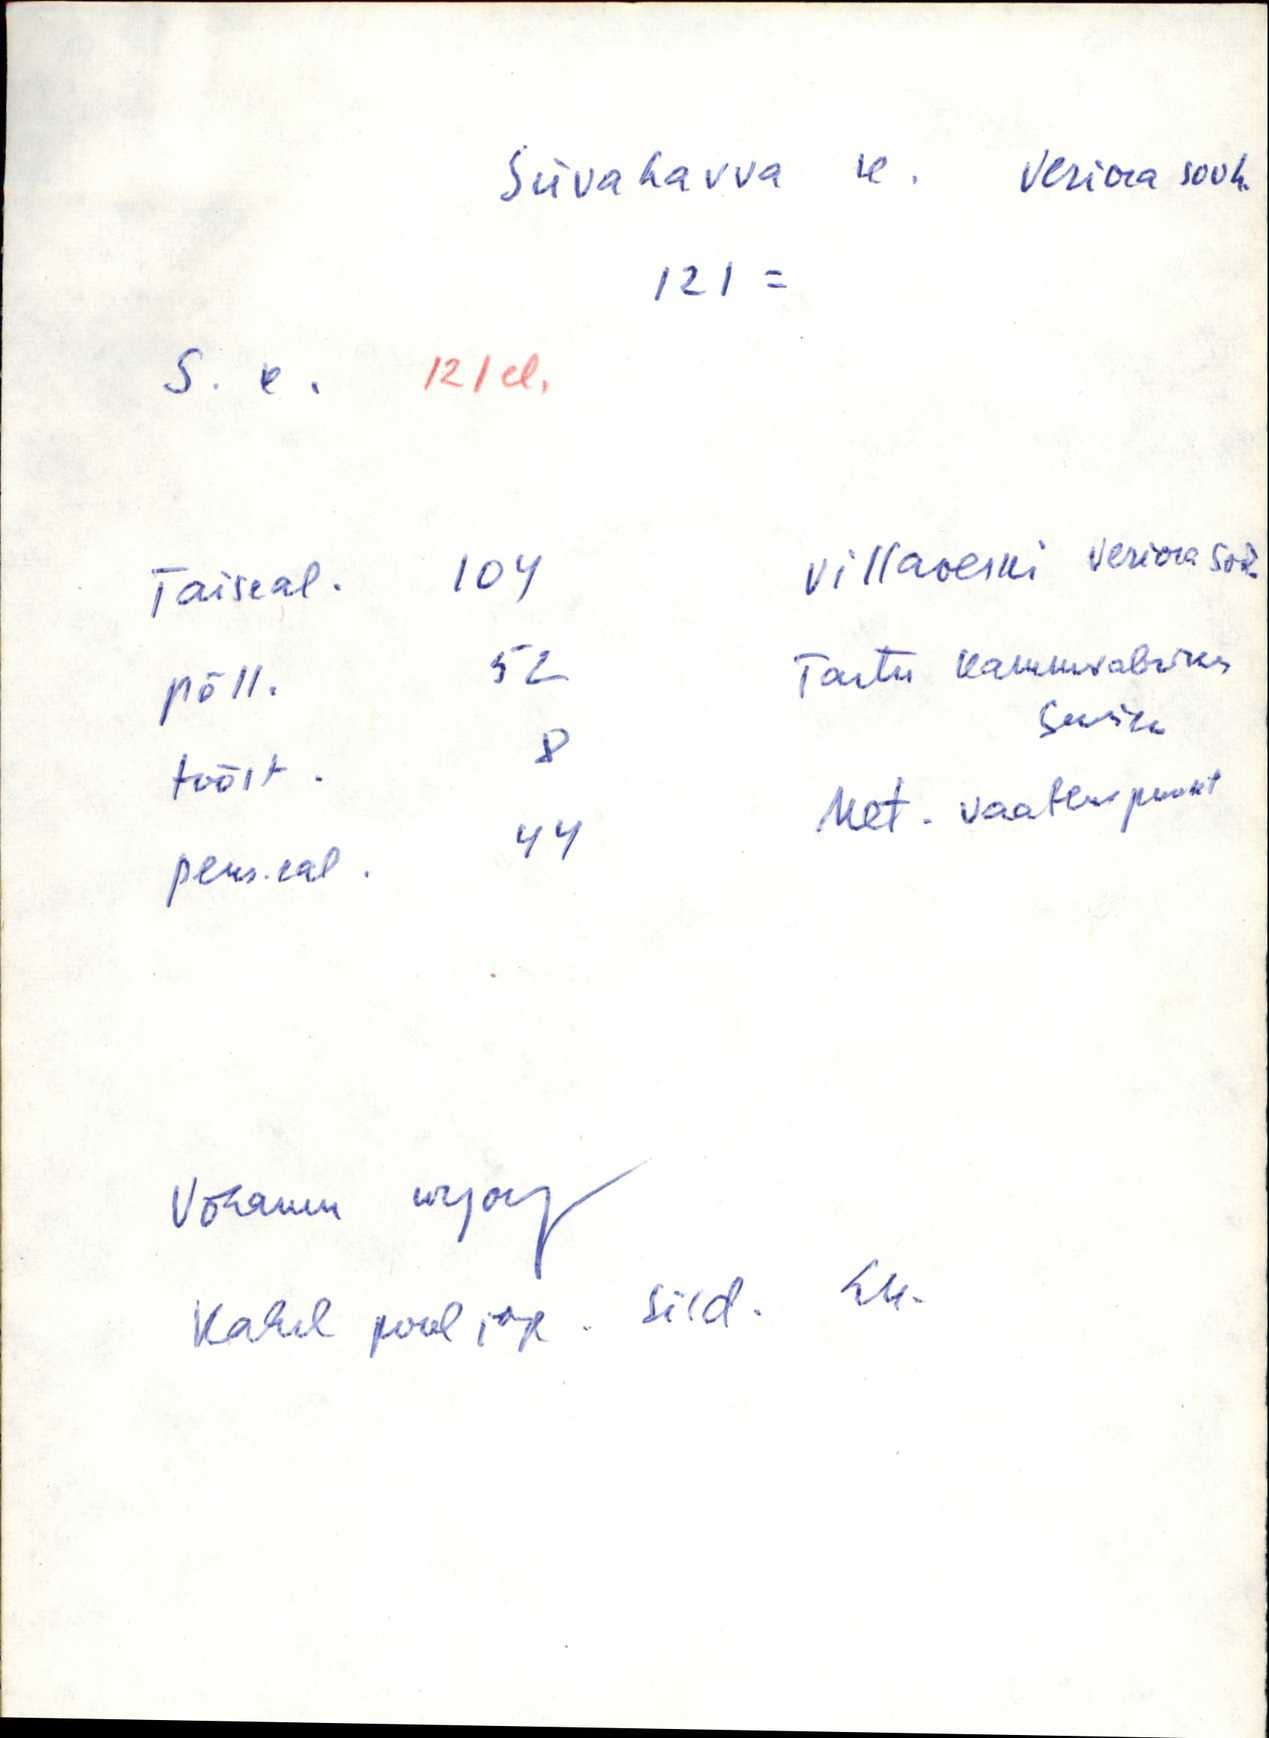 Süvahavva k. Veriora sovh.
121 =
S. k. 121 el.
Täiseal. 104
põll. 52
tööst. 8
pens.eal. 44
Villaveski Veriora sovh.
Tartu Kammivabriku
Met. vaatluspunkt
Võhandu
Kahel pool jõge. Sild.